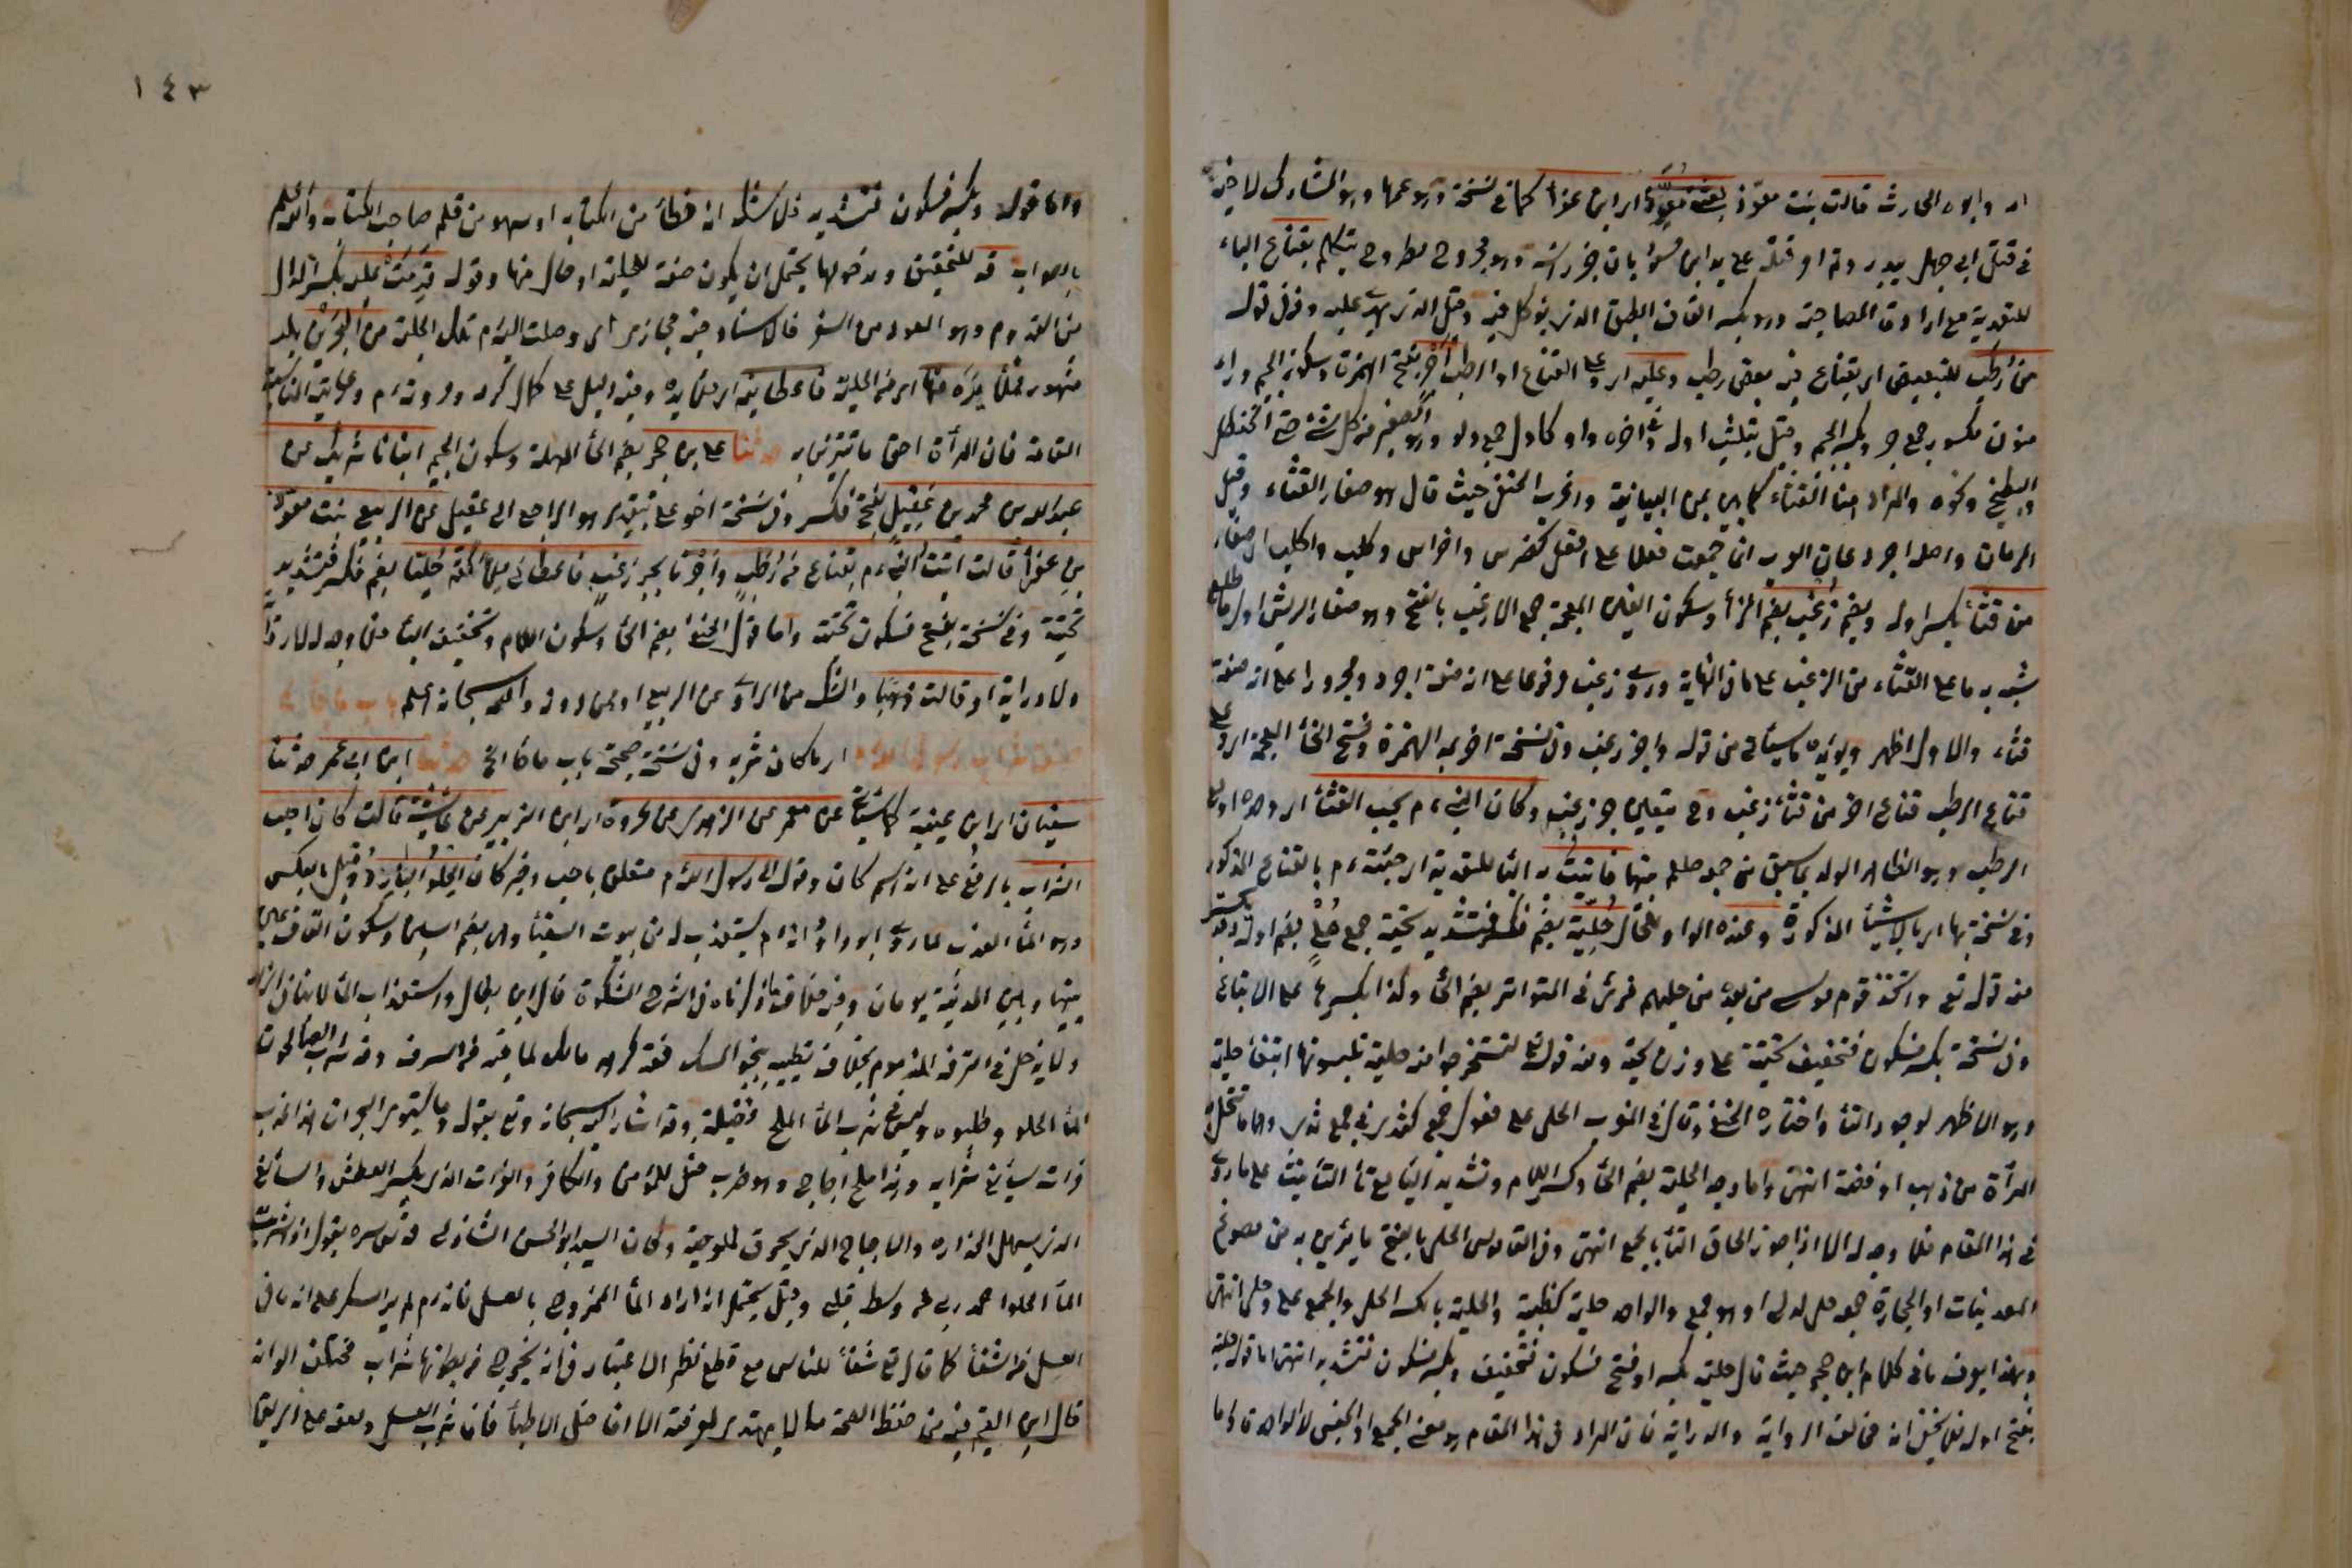 اد وابوه الحارث قالت بعثني معوذ ابن عفراء كما في نسخة وهو عمها وهو المشارك لاخيه
في قتل ابي جهل ببدر وتم امر قتله على يد ابن مسعود بان جز راسه وهو مجروح مطروح يتكلم بقناع الباء
للتعدية مع ارادة المصاحبة وهو بكسر القاف الطبق الذي يؤكل فيه وقيل الذي يهدى عليه وفي قوله
من رطب للتبعيض اي بقناع فيه بعض رطب وعليه اي وعلى القناع او الرطب اجر بفتح الهمزة وسكون الجيم وراء
منون مكسور جمع جرو بكسر الجيم وقيل بتثليث اوله وفي اخره واو كادل جمع دلو وهو الصغير من كل شئ حتى الحنظل
والبطيخ ونحوه والمراد هنا القثاء كما بين بمن البيانية واغرب الحنفي حيث قال هو صغار القثاء وقيل
الرمان واصل اجر وكان الواو انا جمعت فعلا على افعل كضرس واضراس وكلب واكلب اي صغار
من قثاء بكسر اوله وبضم زغب بضم الزاء وسكون الغين المعجمة جمع الازغب بالفتح وهو صغار الريش اول ما طلع
شبه به ما على القثاء من الزغب على ما في النهاية وروي زغب مرفوعا على انه صفة اجر ومجرورا على انه صفة
قثاء والاول اظهر ويؤيده ما سيأتي من قوله واجر زغب وفي نسخة اخر بمد الهمزة وفتح الخاء المعجمة اي وعلى
قناع الرطب قناع اخر من قثاء زغب وح يتعين جر زغب وكان النبي ءم يحب القثاء اي وحده او مع
الرطب وهو الظاهر المؤيد بما سبق من جمعه صلعم بينهما فاتيته به الباء للتعدية اي جئته ءم بالقناع المذكور
وفي نسخة بها اي بالاشياء المذكورة وعنده الواو للحال حلية بضم فكسر فتشديد تحتية جمع حلى بضم اوله وقد يكسر
منه قوله تع واتخذ قوم موسى من بعده من حليهم قرئ في المتواتر بضم الحاء وكذا بكسرها على الاتباع
وفي نسخة بكسر فسكون فتخفيف تحتية على وزن لحية ومنه قوله تع لتستخرجوا منه حلية تلبسونها ابتغاء حلية
وهو الاظهر لوجود التاء واختاره الحنفي وقال في المغرب الحلى على فعول جمع كثدي في جمع ثدي وهي ما تتحلى به
المرأة من ذهب او فضة انتهى واما وجه الحلية بضم الحاء وكسر اللام وتشديد الياء مع تاء التأنيث على ما روي
في هذا المقام فلا وجه له الا اذا جوز الحاق التاء بالجمع انتهى وفي القاموس الحلى بالفتح ما يزين به من مصوغ
المعدنيات او الحجارة جمعه حلى كدلى او هو جمع والواحد حلية كظبية والحلية بالكسر الحلى والجمع حلى وحلى انتهى
وبهذا يعرف ما في كلام ابن حجر حيث قال حلية بكسر او فتح فسكون فتخفيف وبكسر فسكون فتشديد انتهى اما قوله حلية
بفتح اوله فلا يخفى انه مخالف الرواية والدراية فان المراد في هذا المقام هو معنى الجمع او الجنس لا الواحد واما
واما قوله وبكسر فسكون فتشديد فلا شك انه خطأ من الكتابة او سهو من قلم صاحب الكتاب والله اعلم
بالصواب قد للتحقيق ومدخولها يحتمل ان يكون صفة للحلية او حال منها وقوله قدمت عليه بكسر الدال
من القدوم وهو العود من السفر فالاسناد فيه مجازي اي وصلت اليه ءم تلك الحلية من البحرين بلد
مشهور فملأ يده منها اي من الحلية فاعطانيه اي ملئ يده وفيه دليل على كمال كرمه ومروته ءم ورعايته المناسبة
التامة فان المرأة احق ما تتزين به حدثنا علي بن حجر بضم الحاء المهملة وسكون الجيم انبانا شريك عن
عبد الله بن محمد بن عقيل بفتح فكسر وفي نسخة اخو علي بتقدير هو الراجع الى عقيل عن الربيع بنت معوذ
بن عفراء قالت اتيت النبي ءم بقناع من رطب واجر زغب فاعطاني ملأ كفه حليا بضم فكسر فتشديد
تحتية وفي نسخة بفتح فسكون تحتية واما قول الحنفي بضم الحاء وسكون اللام وتخفيف الياء فلا وجه له لا رواية
ولا دراية او قالت ذهبا والشك من الراوي عن الربيع او ممن دونه والله سبحانه اعلم باب ما جاء في
صفة شراب رسول الله ءم اي ما كان يشربه وفي نسخة صحيحة باب ما جاء الخ حدثنا ابن ابي عمر حدثنا
سفيان اي ابن عيينة كما سيأتي عن معمر عن الزهري عن عروة اي ابن الزبير عن عائشة قالت كان احب
الشراب بالرفع على انه اسم كان وقوله الى رسول الله ءم متعلق باحب وخبر كان الحلو البارد وقيل بالعكس
وهو الماء العذب لما روى ابو داود انه ءم يستعذب له من بيوت السقيا وهي بضم السين وسكون القاف عين
بينها وبين المدينة يومان وفيه خلاف قد ذكرناه في شرح المشكوة قال ابن بطال واستعذاب الماء لا ينافي الزهد
ولا يدخل في الترفه المذموم بخلاف تطييبه بنحو المسك فقد كرهه مالك لما فيه من السرف وقد شرب الصالحون
الماء الحلو وطلبوه وليس في شرب الماء الملح فضيلة وقد اشار اليه سبحانه وتع بقوله وما يستوي البحران هذا عذب
فرات سائغ شرابه وهذا ملح اجاج وهو ضرب مثل للمؤمن والكافر والفرات الذي يكسر العطش والسائغ
الذي يسهل انحداره والاجاج الذي يحرق لملوحته وكان السيد ابو الحسن الشاذلي قدس سره يقول اذا شربت
الماء الحلو احمد ربي من وسط قلبي وقيل يحتمل انه اراد الماء الممزوج بالعسل فانه ءم لم ير السكر على انه ما في
العسل من الشفاء كما قال تع شفاء للناس مع قطع نظر الاعتبار في انه يخرج من بطونها شراب مختلف الوانه
قال ابن القيم فيه من حفظ الصحة ما لا يهتدي لمعرفته الا افاضل الاطباء فان شرب العسل ولعقه على الريق
١٤٣